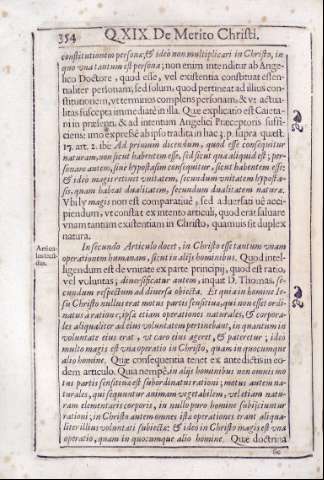 354 Q.XIX De Merito Christi.
constitutionem personæ, & ideò non multiplicari in Christo, in
quo vna tantum est persona; non enim intenditur ab Ange-
lico Doctore, quod esse, vel existentia constituat essen-
tialiter personam, sed solum, quod pertineat ad illius con-
stitutionem, vt terminus complens personam, & vt actua-
litas suscepta immediatè in illa. Quæ explicatio est Caieta-
ni in præsenti, & ad intentum Angelici Præceptoris suffi-
ciens: imo expressè ab ipso tradita in hac 3. p. supra quæst.
17. art. 2. ibi: Ad primum dicendum, quod esse consequitur
naturam, non sicut habentem esse, sed sicut qua aliquid est; per-
sonam autem, siuè hypostasim consequitur, sicut habentem esse;
& ideò magis retinet vnitatem, secundum vnitatem hyposta-
sis, quam habeat dualitatem, secundum dualitatem naturæ.
Vbi ly magis non est comparatiuè, sed aduersatiuè acci-
piendum, vt constat ex intento articuli, quod erat saluare
vnam tantum existentiam in Christo, quamuis sit duplex
natura.
In secundo Articulo docet, in Christo esse tantum vnam
operationem humanam, sicut in alijs hominibus. Quod intel-
ligendum est de vnitate ex parte principij, quod est ratio,
vel voluntas; diuersificatur autem, inquit D. Thomas, se-
cundum respectum ad diuersa obiecta. Et quia in homine Ie-
su Christo nullus erat motus partis sensitiuæ, qui non esset ordi-
natus à ratione; ipsæ etiam operationes naturales, & corpora-
les aliqualiter ad eius voluntatem pertinebant, in quantum in
voluntate eius erat, vt caro eius ageret, & pateretur; ideo
multo magis est vna operatio in Christo, quam in quocumque
alio homine. Quæ consequentia tenet ex antedictis in eo-
dem articulo. Quia nempè in alijs hominibus non omnis mo-
tus partis sensitiuæ est subordinatus rationi; motus autem na-
turales, qui sequuntur animam vegetabilem, vel etiam natu-
ram elementaris corporis, in nullo puro homine subijciuntur
rationi; in Christo autem omnes istæ operationes erant aliqua-
liter illius voluntati subiectæ: & ideò in Christo magis est vna
operatio, quam in quocumque alio homine. Quæ doctrina